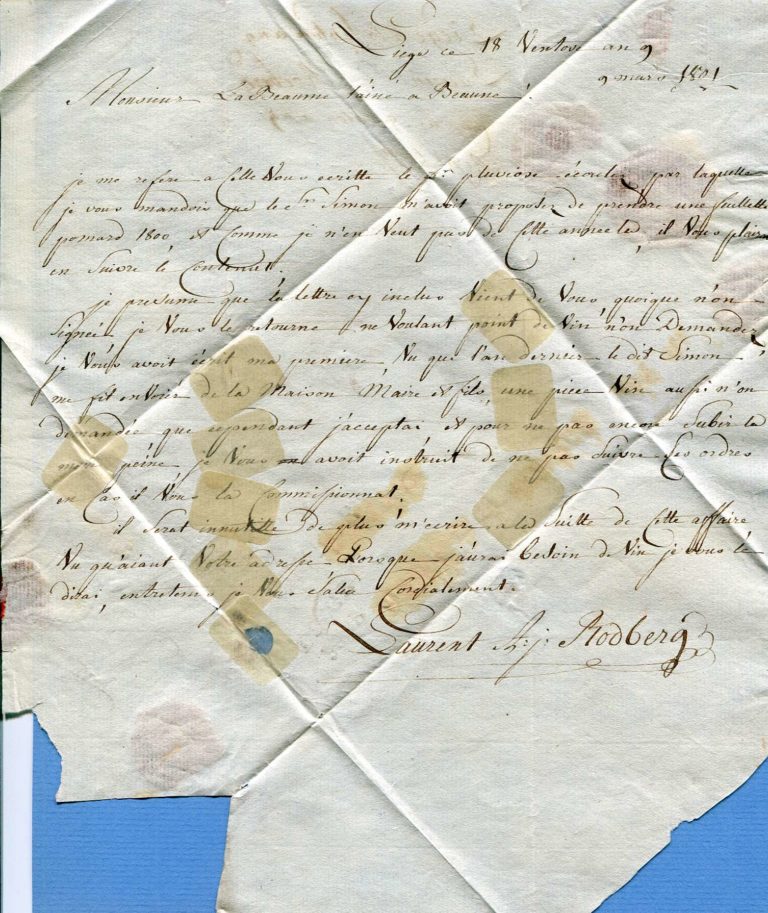 Liege ce 18 Ventose an 9
9 mars 1801
Monsieur LaBeaume l'ainé a Beaune
je me refere a Cette Vous écritte le pluviose écoulez par laquelle
je vous mandois que le cn Simon m'avoit proposer de prendre une feuillette
pomard 1800 et Comme je n'en Veut pas de Cette année la, il Vous plaira
en Suivre le Contenut.
je presume que la lettre cy inclus Vient de Vous quoique n'on
Signée je Vous le retourne ne Voulant point de Vin n'on Demandez
je Vous avoit écrit ma premiere Vu que l'an dernier le dit Simon
me fit envoier de la Maison Maire et fils une piece Vin aussi n'on
demandée que cependant j'acceptai et pour ne pas encore Subir la
même péine je Vous avoit instruit de ne pas Suivre Ses ordres
en Cas il Vous la Commissionnat.
il Serat innutille de plus m'ecrire a la Suitte de Cette affaire
Vu qu'aiant Votre adresse Lorsque j'aurai besoin de Vin je vous le
dirai, entretems je Vous Salue Cordialement.
Laurent h: j: Rodberg